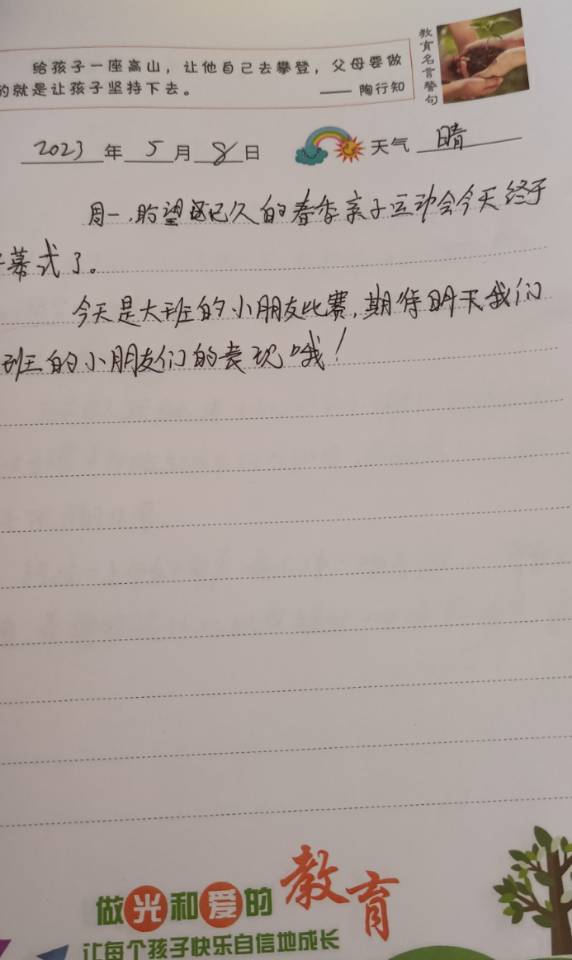 给孩子一座高山，让他自己去攀登，父母要做
的就是让孩子坚持下去。
—— 陶行知
教育名言警句
2023年5月8日 天气 晴
周一，盼望已久的春季亲子运动会今天终于
幕式了。
今天是大班的小朋友比赛，期待明天我们
班的小朋友们的表现哦！
做光和爱的教育
让每个孩子快乐自信地成长